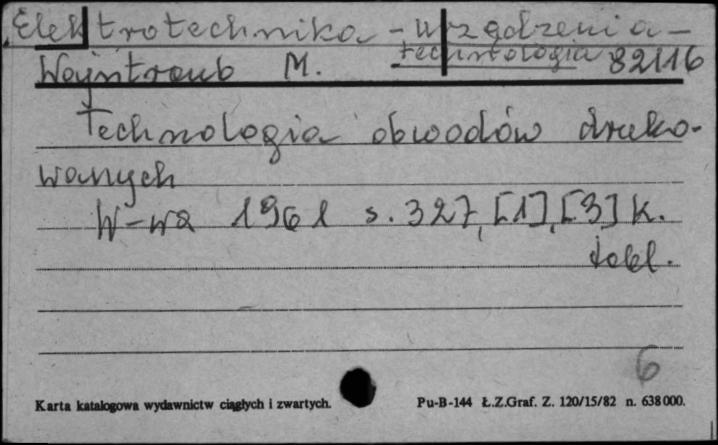 Elektrotechnika - urządzenia -
- technologia
Wajntraub M. 82116
Technologia obwodów druko-
wanych
W-wa 1961 s. 327, [1], [3] K.
tabl.
6
Karta katalogowa wydawnictw ciągłych i zwartych. Pu-B-144 Ł.Z.Graf. Z. 120/15/82 n. 638000.